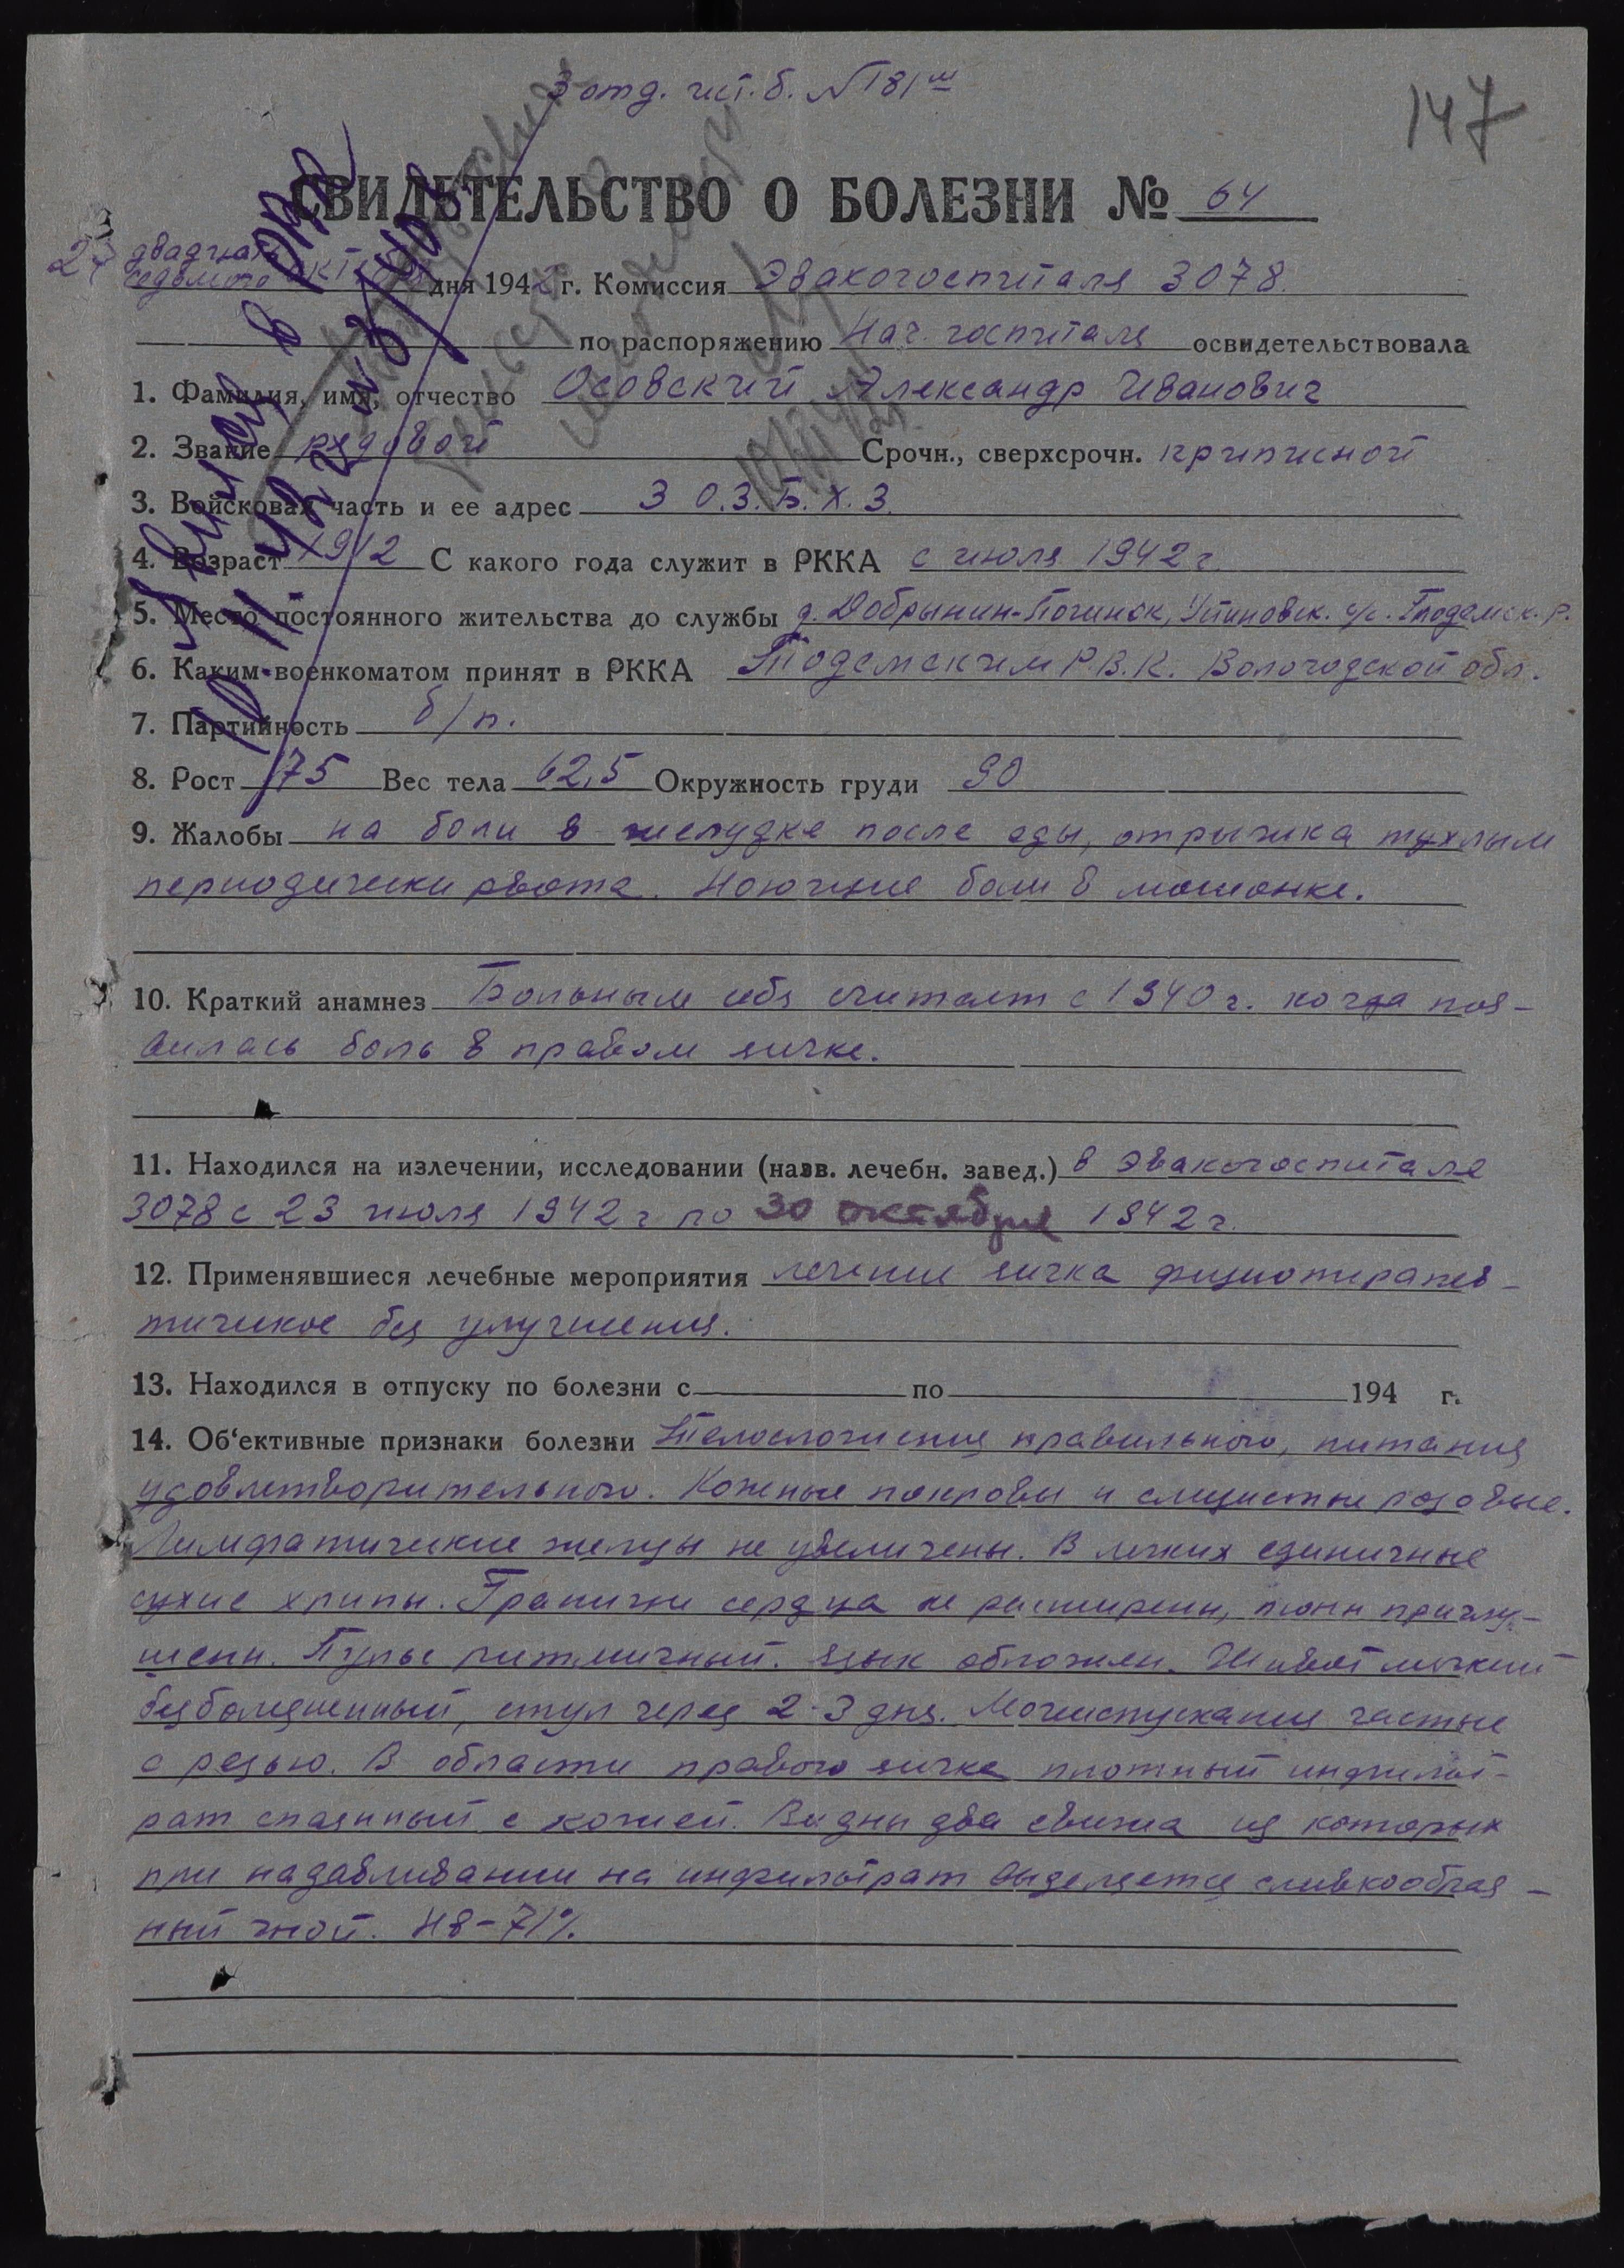 3 отд. ист. б. № 181ш
147
СВИДЕТЕЛЬСТВО О БОЛЕЗНИ № 64
27 двадцать
седьмого окт дня 1942 г. Комиссия Эвакогоспиталя 3078.
по распоряжению Нач. госпиталя освидетельствовала
1. Фамилия, имя, отчество Осовский Александр Иванович
2. Звание рядовой Срочн., сверхсрочн. приписной
3. Войсковая часть и ее адрес 3 О.З.Б.Х.З.
4. Возраст 1912 С какого года служит в РККА с июля 1942 г.
5. Место постоянного жительства до службы д. Добрынин-Починок, с/с.
6. Каким военкоматом принят в РККА Тотемским Р.В.К. Вологодской обл.
7. Партийность б/п.
8. Рост 175 Вес тела 62,5 Окружность груди 90
9. Жалобы на боли в желудке после еды, отрыжка тухлым
периодически рвота. Ноющие боли в мошонке.
10. Краткий анамнез Больным себя считает с 1940 г. когда поя-
вилась боль в правом яичке.
11. Находился на излечении, исследовании (назв. лечебн. завед.) в эвакогоспитале
3078 с 23 июля 1942 г по 30 октября 1942 г.
12. Применявшиеся лечебные мероприятия лечение яичка физиотерапев-
тическое без улучшения.
13. Находился в отпуску по болезни с по 194 г.
14. Об‘ективные признаки болезни Телосложения правильного, питания
удовлетворительного. Кожные покровы и слизистые розовые.
Лимфатические железы не увеличены. В легких единичные
сухие хрипы. Границы сердца не расширены, тоны приглу-
шены. Пульс ритмичный. Язык обложен. Живот мягкий
безболезненный, стул через 2-3 дня. Мочеиспускания частые
с резью. В области правого яичка плотный инфильт-
рат спаянный с кожей. Видны два свища из которых
при надавливании на инфильтрат выделяется сливкообраз-
ный гной. Нв-71%.